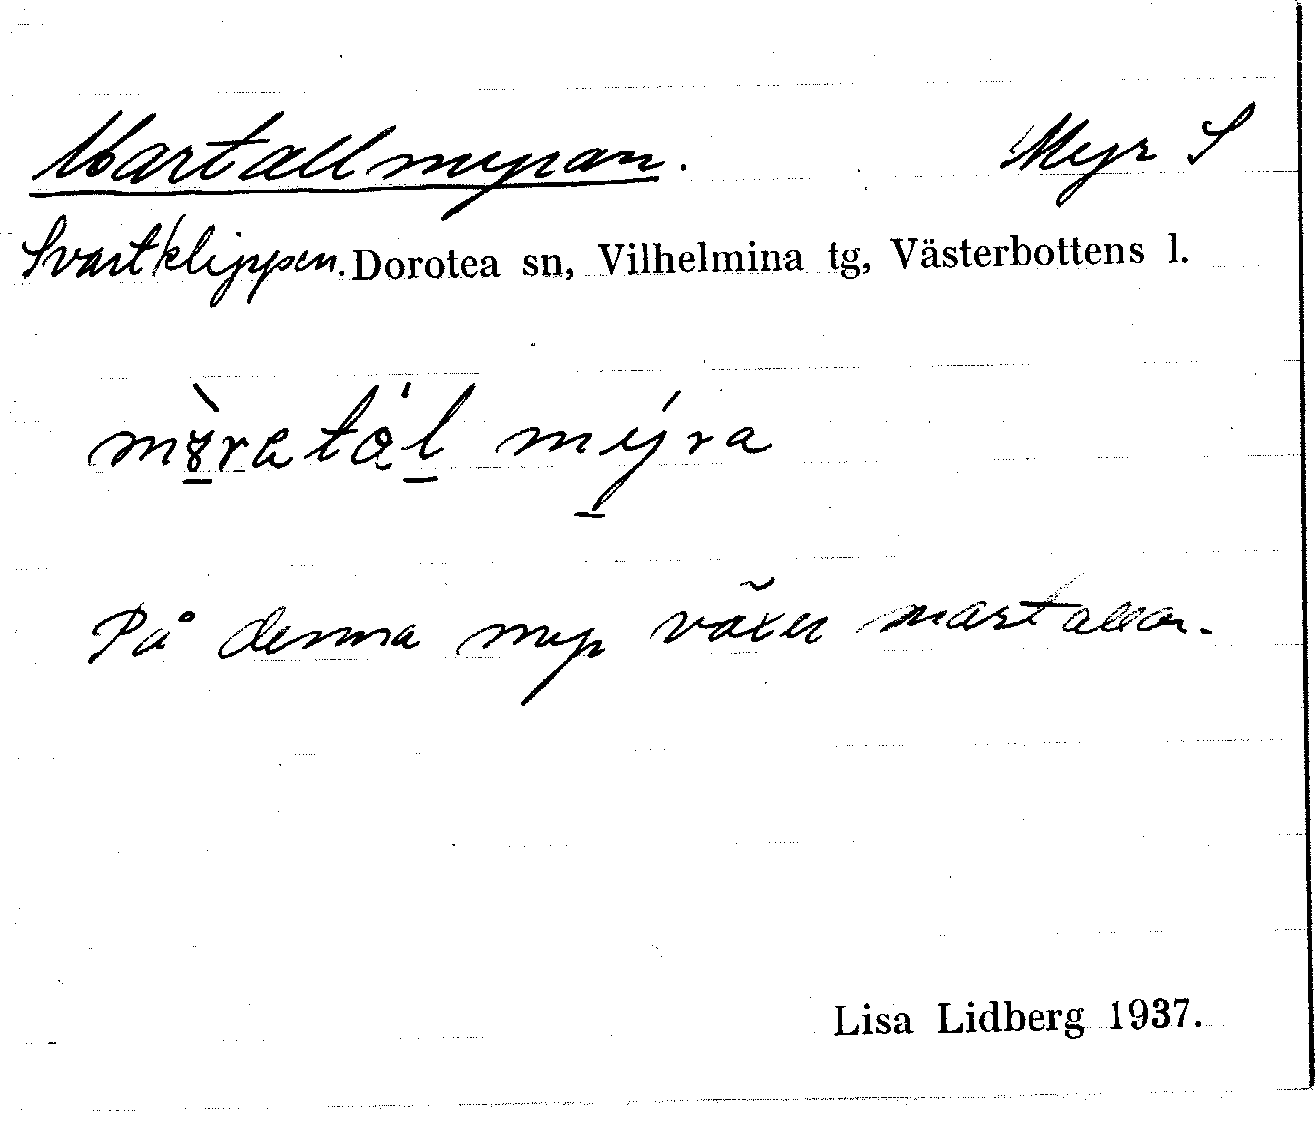 Martallmyran. Myr S
Svartklippen. Dorotea sn, Vilhelmina tg, Västerbottens l.
mýra
På denna myr växer martallar.
Lisa Lidberg 1937.